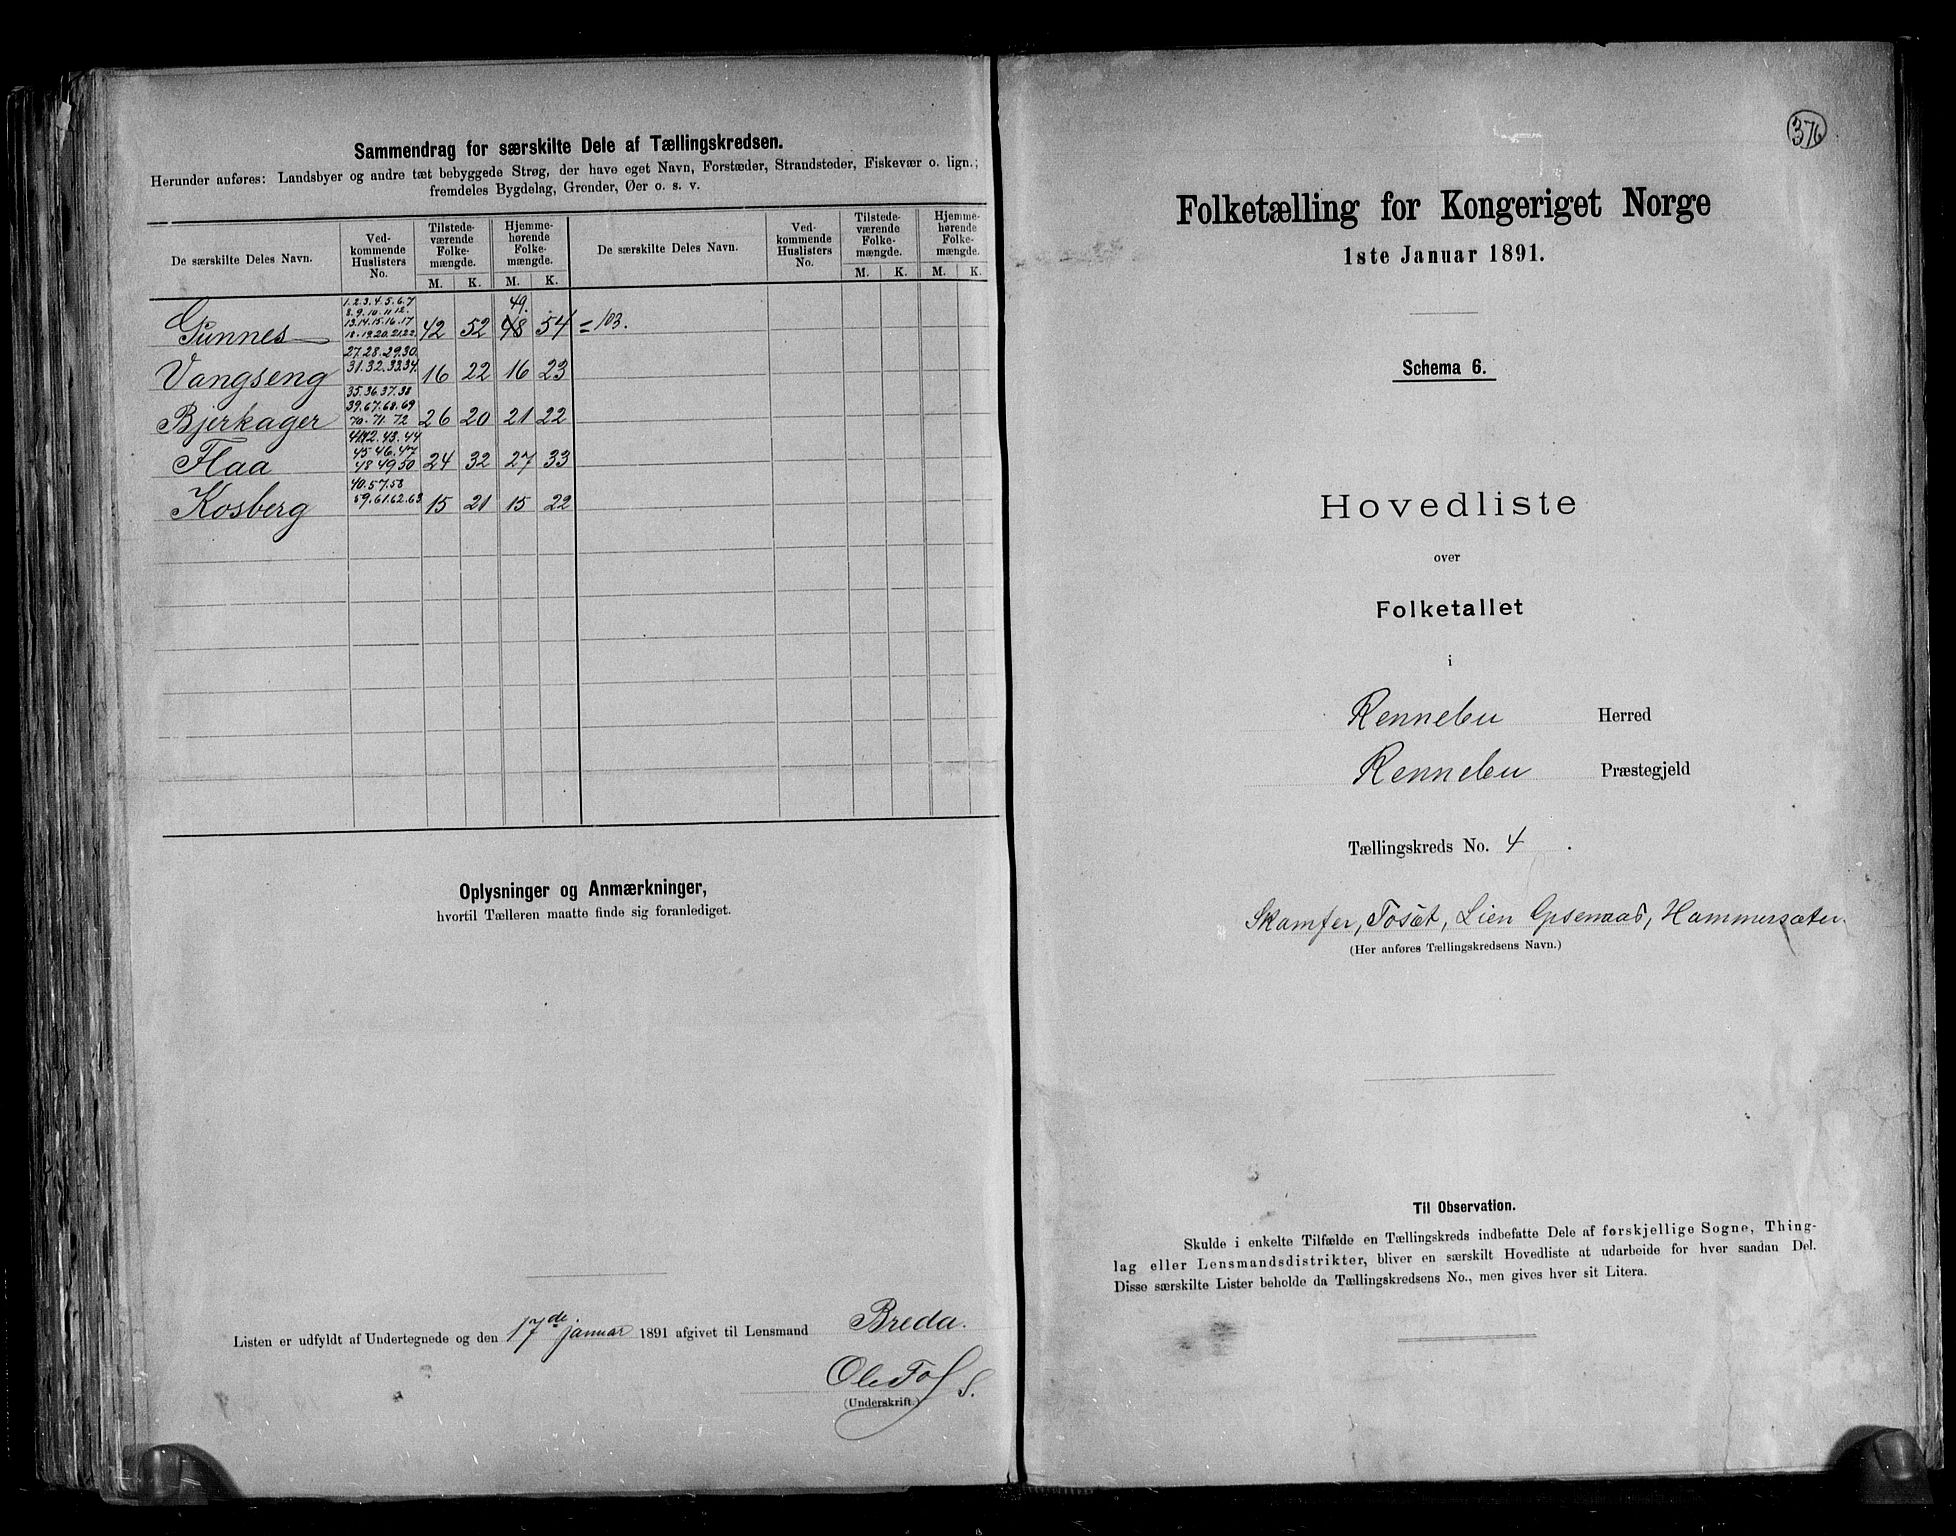 Sammendrag for særskilte Dele af Tællingskredsen.
Herunder anføres: Landsbyer og andre tæt bebyggede Strøg, der have eget Navn, Forstæder, Strandsteder, Fiskevær o. lign.;
fremdeles Bygdelag, Grender, Øer o. s. v.
De særskilte Deles Navn. Ved-kommende Huslisters No. Tilstede-værende Folke-mængde. Hjemme-hørende Folke-mængde. De særskilte Deles Navn. Ved-kommende Huslisters No. Tilstede-værende Folke-mængde. Hjemme-hørende Folke-mængde.
M. K. M. K. M. K. M. K.
1.2.3.4.5.6.7
8.9.10.11.12.
13.14.15.16.17
18.19.20.21.22
49.
Gunnes 42 52 48 54 = 103.
27.28.29.30
31.32.33.34
Vangseng 16 22 16 23
35.36.37.38
39.67.68.69
70.71.72
Bjerkager 26 20 21 22
41.42.43.44
45.46.47
48 49.50
Flaa 24 32 27 33
40.57.58
59.61.62.63
Kosberg 15 21 15 22
Oplysninger og Anmærkninger,
hvortil Tælleren maatte finde sig foranlediget.
Listen er udfyldt af Undertegnede og den 17de januar 1891 afgivet til Lensmand Breda.
(Underskrift.)
376
Folketælling for Kongeriget Norge
1ste Januar 1891.
Schema 6.
Hovedliste
over
Folketallet
i
Rennebu Herred
Rennebu Præstegjeld
Tællingskreds No. 4.
Skamfer, Tosæt, Lien Gpsenaas, Hammersæter.
(Her anføres Tællingskredsens Navn.)
Til Observation.
Skulde i enkelte Tilfælde en Tællingskreds indbefatte Dele af forskjellige Sogne, Thing-
lag eller Lensmandsdistrikter, bliver en særskilt Hovedliste at udarbeide for hver saadan Del.
Disse særskilte Lister beholde da Tællingskredsens No., men gives hver sit Litera.